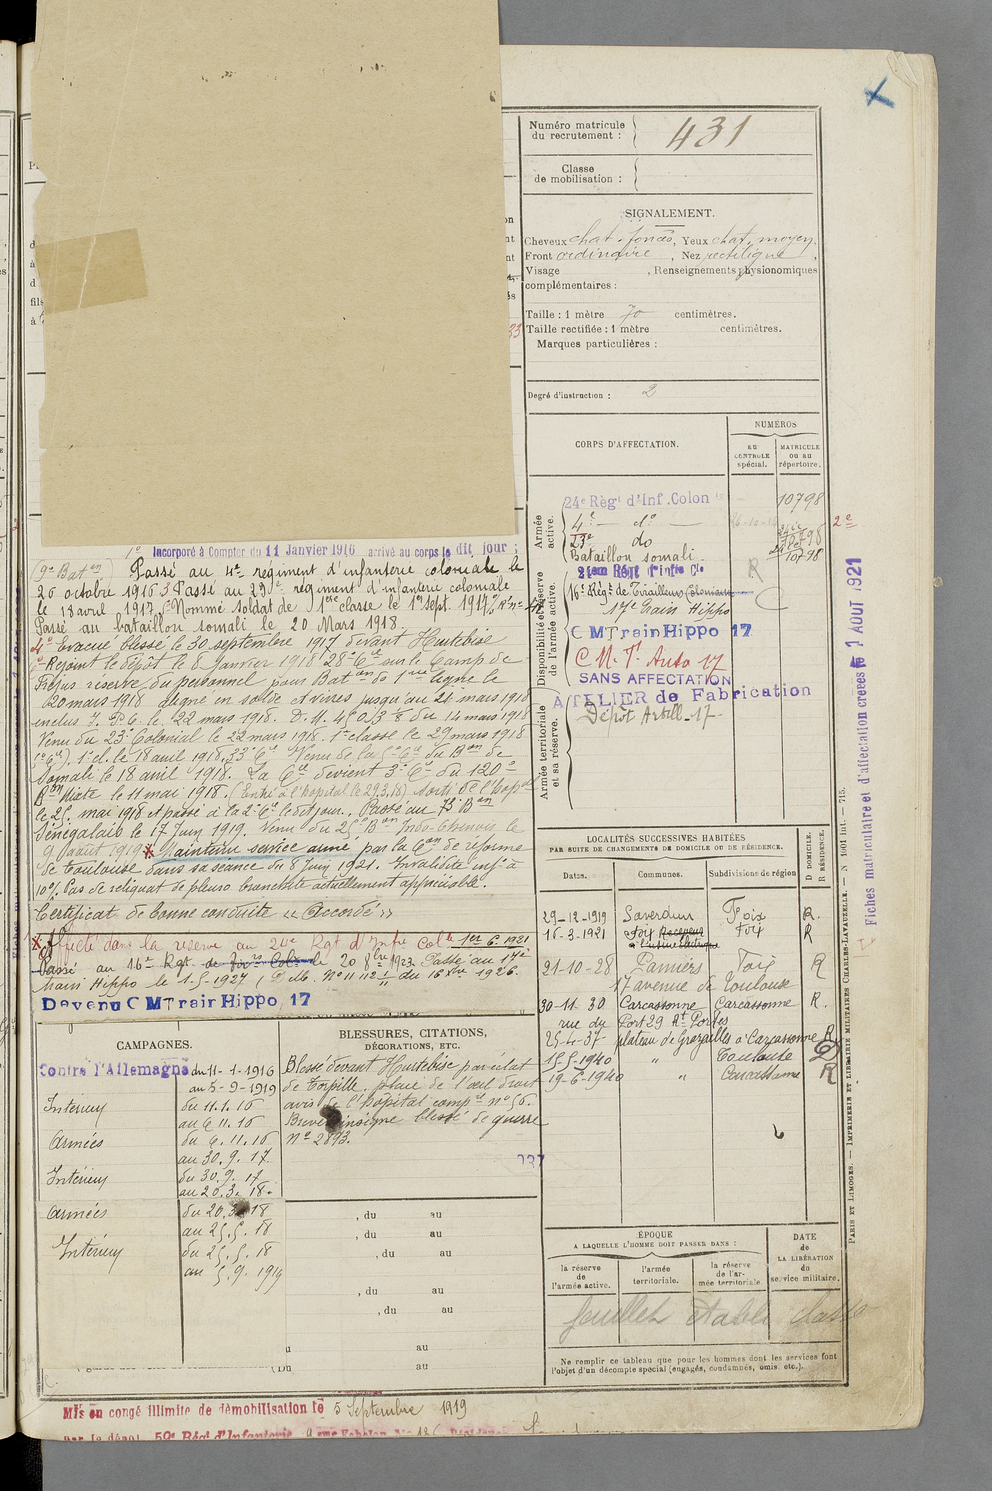 Numéro matricule
du recrutement :
431
Classe
de mobilisation :
SIGNALEMENT.
Cheveux chat. foncés, Yeux chat. moyen,
Front ordinaire, Nez rectiligne,
Visage , Renseignements physionomiques
complémentaires :
Taille : 1 mètre 70 centimètres.
Taille rectifiée : 1 mètre centimètres.
Marques particulières :
Degré d'instruction : 2
CORPS D'AFFECTATION.
NUMÉROS
AU CONTROLE spécial.
MATRICULE OU AU répertoire.
Armée active.
24e Régt d'Inf. Colon
10798
4e — do —
2e
23e do
Bataillon somali
10798
Disponibilité et réserve de l'armée active.
21em Régt d'Infie Cle
16e Régt de Tirailleurs Coloniaux
R
17e Train Hippo
C
C M Train Hippo 17
C. M. T. Auto 17
SANS AFFECTATION
Armée territoriale et sa réserve.
ATELIER de Fabrication
Dépôt Artill. 17
1° Incorporé à Compter du 11 Janvier 1916 arrivé au corps le dit jour ;
(9e Baton) Passé au 4e régiment d'infanterie coloniale le
20 octobre 1916 Passé au 23e régiment d'infanterie coloniale
le 18 avril 1917. Nommé soldat de 1ère classe le 1er sept. 1917
Passé au bataillon somali le 20 Mars 1918.
4° Evacué blessé le 30 septembre 1917 devant Hurtebise
Rejoint le dépôt le 8 Janvier 1918 28e Cie sur le Camp de
Fréjus réserve du personnel pour Baton de 1re ligne le
20 mars 1918 aligné en solde et vivres jusqu'au 21 mars 1918
inclus le 22 mars 1918. D. M. du 14 mars 1918
Venu du 23e Colonial le 22 mars 1918. 1e classe le 29 mars 1918
1e cl. le 18 avril 1918. 33e Cie Venu de la Cie du Bon de
Somali le 18 avril 1918. La Cie devient 3e Cie du 120e
Bon Mixte le 11 mai 1918 (Entré à l'hôpital le 29.3.18) Sorti de l'hopal
le 25 mai 1918 et passé à la 2e Cie le dit jour. Passé au 73e Bon
Sénégalais le 17 Juin 1919. Venu du Bon Indo-Chinois le
9 août 1919 Maintenu service armé par la Con de réforme
de Toulouse dans sa séance du 8 Juin 1921. Invalidité infre à
10% Pas de reliquat de pleuro bronchite actuellement appréciable.
Certificat de bonne conduite « Accordé »
Affecté dans la réserve au 24e Rgt d'Infie Colle 1er 6. 1921
Passé au 16e Rgt de Tirrs Colx le 20 8bre 1923. Passé au 17e
train Hippo le 1.5.1927 (Délb. N° 11 112 du 16 Xbre 1926.
Devenu C M Train Hippo, 17
CAMPAGNES.
Contre l'Allemagne du 11-1-1916
au 5-9-1919
Intérieur du 11.1.16
au 6.11.16
Armées du 6.11.16
au 30.9.17.
Intérieur du 30.9.17
au 20.3.18.
Armées du 20.3.18
au 25.5.18
Intérieur du 25.5.18
au 5.9.1919
BLESSURES, CITATIONS,
DÉCORATIONS, ETC.
Blessé devant Hurtebise par éclat
de torpille, plaie de l'œil droit
avis de l'hôpital compre n° 56.
Brevet insigne blessé de guerre
N° 2893.
, du au
, du au
, du au
, du au
, du au
au
(Du au
LOCALITÉS SUCCESSIVES HABITÉES
PAR SUITE DE CHANGEMENTS DE DOMICILE OU DE RÉSIDENCE.
Dates. Communes. Subdivisions de région
D DOMICILE.
R RÉSIDENCE.
29-12-1919 Saverdun Foix R.
16-3-1921 Foix Foix R
à l'usine électrique
21-10-28 Pamiers Foix R
17 avenue de Toulouse
30-11-30 Carcassonne Carcassonne R.
rue du Port 29
25-4-37 plateau de Grazailles à Carcassonne R
15-5-1940 " Toulouse D
19-6-1940 " Carcassonne R
ÉPOQUE
A LAQUELLE L'HOMME DOIT PASSER DANS :
DATE de LA LIBÉRATION du service militaire.
la réserve de l'armée active.
l'armée territoriale.
la réserve de l'armée territoriale.
feuillet établi classe
Ne remplir ce tableau que pour les hommes dont les services font
l'objet d'un décompte spécial (engagés, condamnés, omis, etc.).
Mis en congé illimité de démobilisation le 5 Septembre 1919
par le dépôt 59e Régt d'Infanterie
Fiches matriculaire et d'affectation créées le 1 AOUT 1921
PARIS ET LIMOGES. — IMPRIMERIE ET LIBRAIRIE MILITAIRES CHARLES-LAVAUZELLE. — N 1001 Int. — 715.